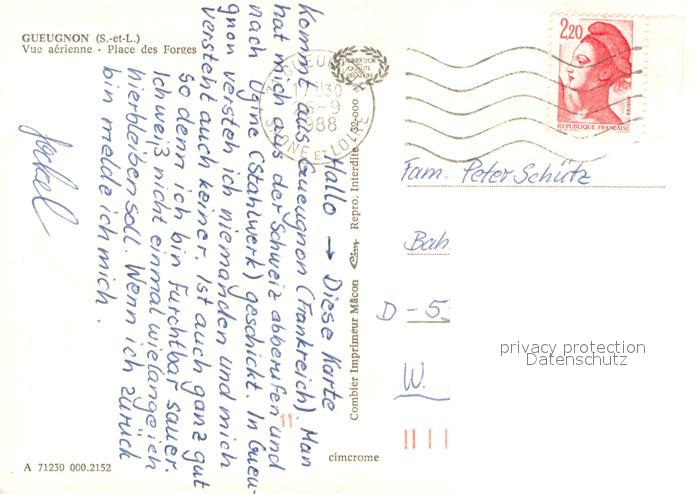 GUEUGNON (S.-et-L.)
Vue aérienne - Place des Forges
Hallo → Diese Karte
kommt aus Gueugnon (Frankreich). Man
hat mich aus der Schweiz abberufen und
nach Ugine (Stahlwerk) geschickt. In Gueu-
gnon versteh ich niemanden und mich
versteht auch keiner. Ist auch ganz gut
so denn ich bin furchtbar sauer.
Ich weiß nicht einmal wielange ich
hierbleiben soll. Wenn ich zurück
bin melde ich mich.
Combier Imprimeur Mâcon Cim Repro. Interdite 52-000
17 H30
-9
1988
SAONE ET LOIRE
2,20
REPUBLIQUE FRANÇAISE
Fam. Peter Schütz
Bah
D - 5
W.
privacy protection
Datenschutz
11
cimcrome
A 71230 000.2152